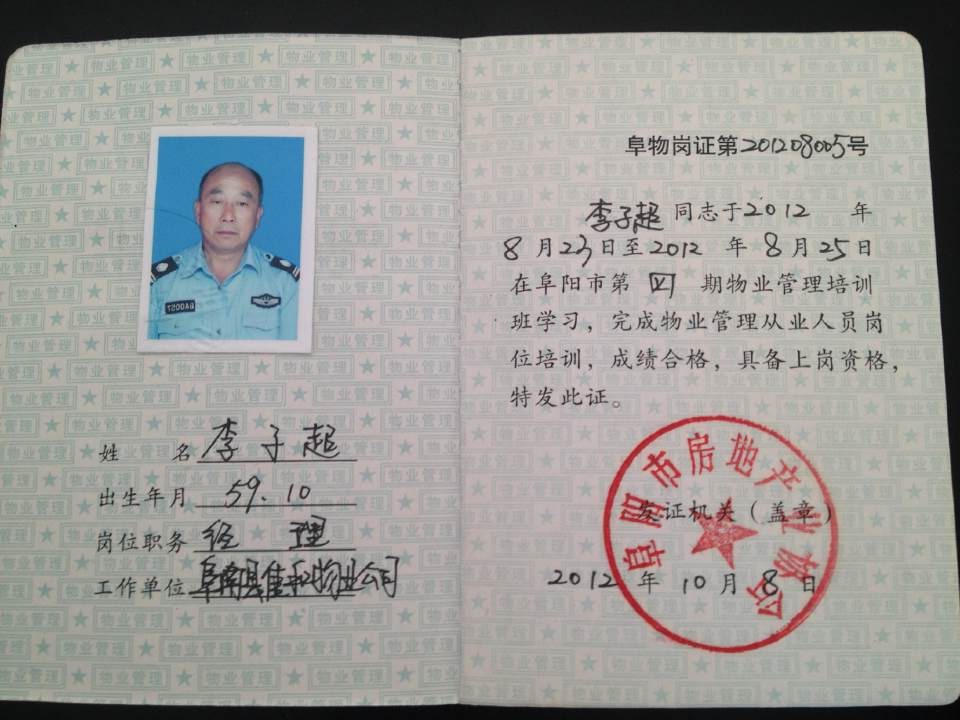 姓 名 李子超
出生年月 59.10
岗位职务 经 理
工作单位 阜南县佳和物业公司
阜物岗证第201208005号
李子超同志于2012 年
8月23日至2012 年8月25日
在阜阳市第 四 期物业管理培训
班学习，完成物业管理从业人员岗
位培训，成绩合格，具备上岗资格，
特发此证。
阜阳市房地产业协会
发证机关（盖章）
2012 年 10 月 8 日